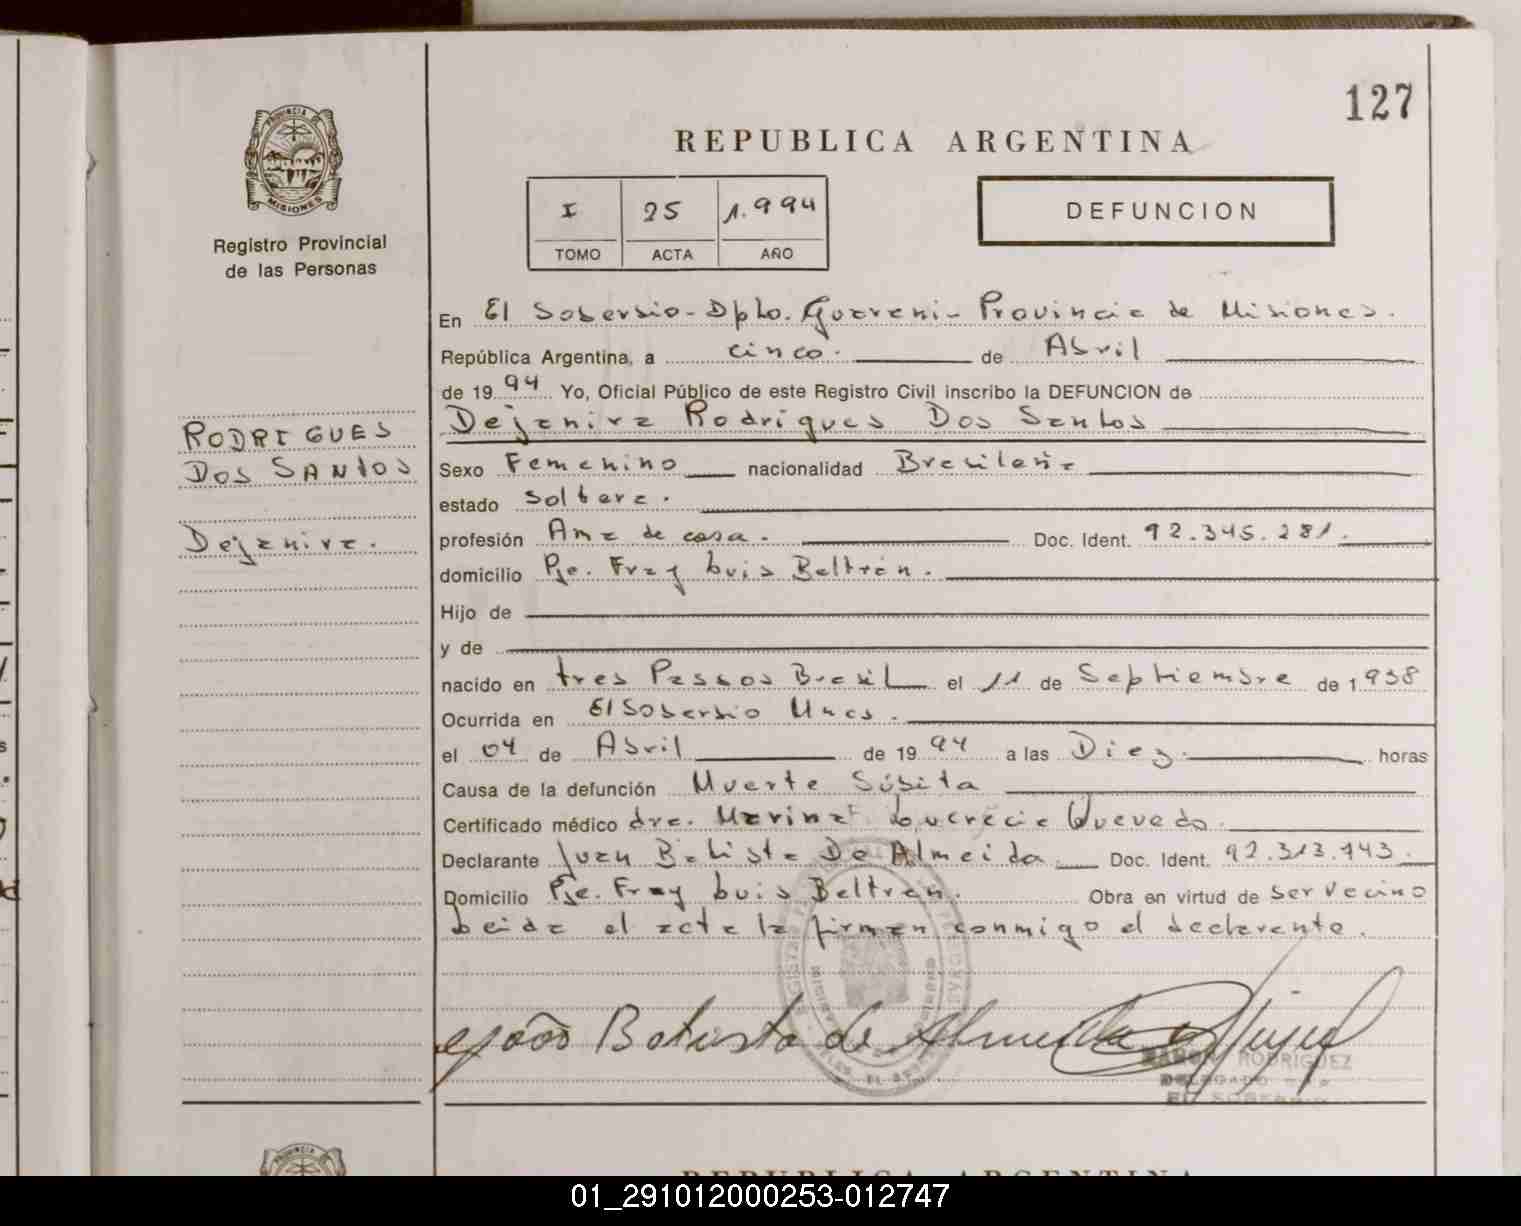 127
PROVINCIA DE
MISIONES
Registro Provincial
de las Personas
REPUBLICA ARGENTINA
I 25 1.994
TOMO ACTA AÑO
DEFUNCION
En El Soberbio - Dpto. Guarani - Provincia de Misiones.
República Argentina, a cinco. de Abril
de 1994 Yo, Oficial Público de este Registro Civil inscribo la DEFUNCION de
Dejanira Rodrigues Dos Santos
RODRIGUES
DOS SANTOS
Dejanira.
Sexo Femenino nacionalidad Brasileña
estado soltera.
profesión Ama de casa. Doc. Ident. 92.345.281.
domicilio Pje. Fray Luis Beltrán.
Hijo de
y de
nacido en tres Passos Brasil el 11 de Septiembre de 1938
Ocurrida en El Soberbio Mnes.
el 04 de Abril de 1994 a las Diez. horas
Causa de la defunción Muerte Súbita
Certificado médico dra. Marina Lucrecia Quevedo.
Declarante Juan Batista De Almeida. Doc. Ident. 92.313.743.
Domicilio Pje. Fray Luis Beltran. Obra en virtud de ser vecino
Leida el acta la firman conmigo el declarante.
João Batista de Almeida
RODRIGUEZ
DELEGADO
EL SOBERBIO
REPUBLICA ARGENTINA
01_291012000253-012747